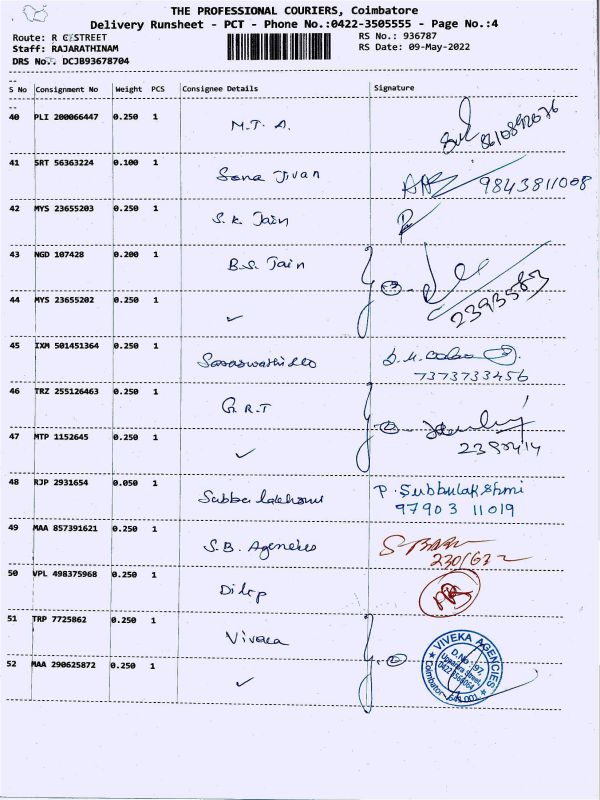 THE PROFESSIONAL COURIERS, Coimbatore
Delivery Runsheet - PCT - Phone No.:0422-3505555 - Page No.:4
Route: R G STREET
Staff: RAJARATHINAM
DRS No.. DCJB93678704
RS No.: 936787
RS Date: 09-May-2022
S No Consignment No Weight PCS Consignee Details Signature
40 PLI 200066447 0.250 1 M.T. A.
8610892076
41 SRT 56363224 0.100 1 Sona Jivan 9843811008
42 MYS 23655203 0.250 1 S.K Jain
43 NGD 107428 0.200 1 B.S. Jain
2393583
44 MYS 23655202 0.250 1 ✓
45 IXM 501451364 0.250 1
7373733456
46 TRZ 255126463 0.250 1 G.R.T
47 MTP 1152645 0.250 1 ✓
48 RJP 2931654 0.050 1 P. Subbulakshmi
97903 11019
49 MAA 857391621 0.250 1 S.B. Agencies
50 VPL 498375968 0.250 1 Dilip
51 TRP 7725862 0.250 1
52 MAA 290625872 0.250 1 ✓
VIVEKA AGENCIES
D.No 97,
Coimbatore 641 001